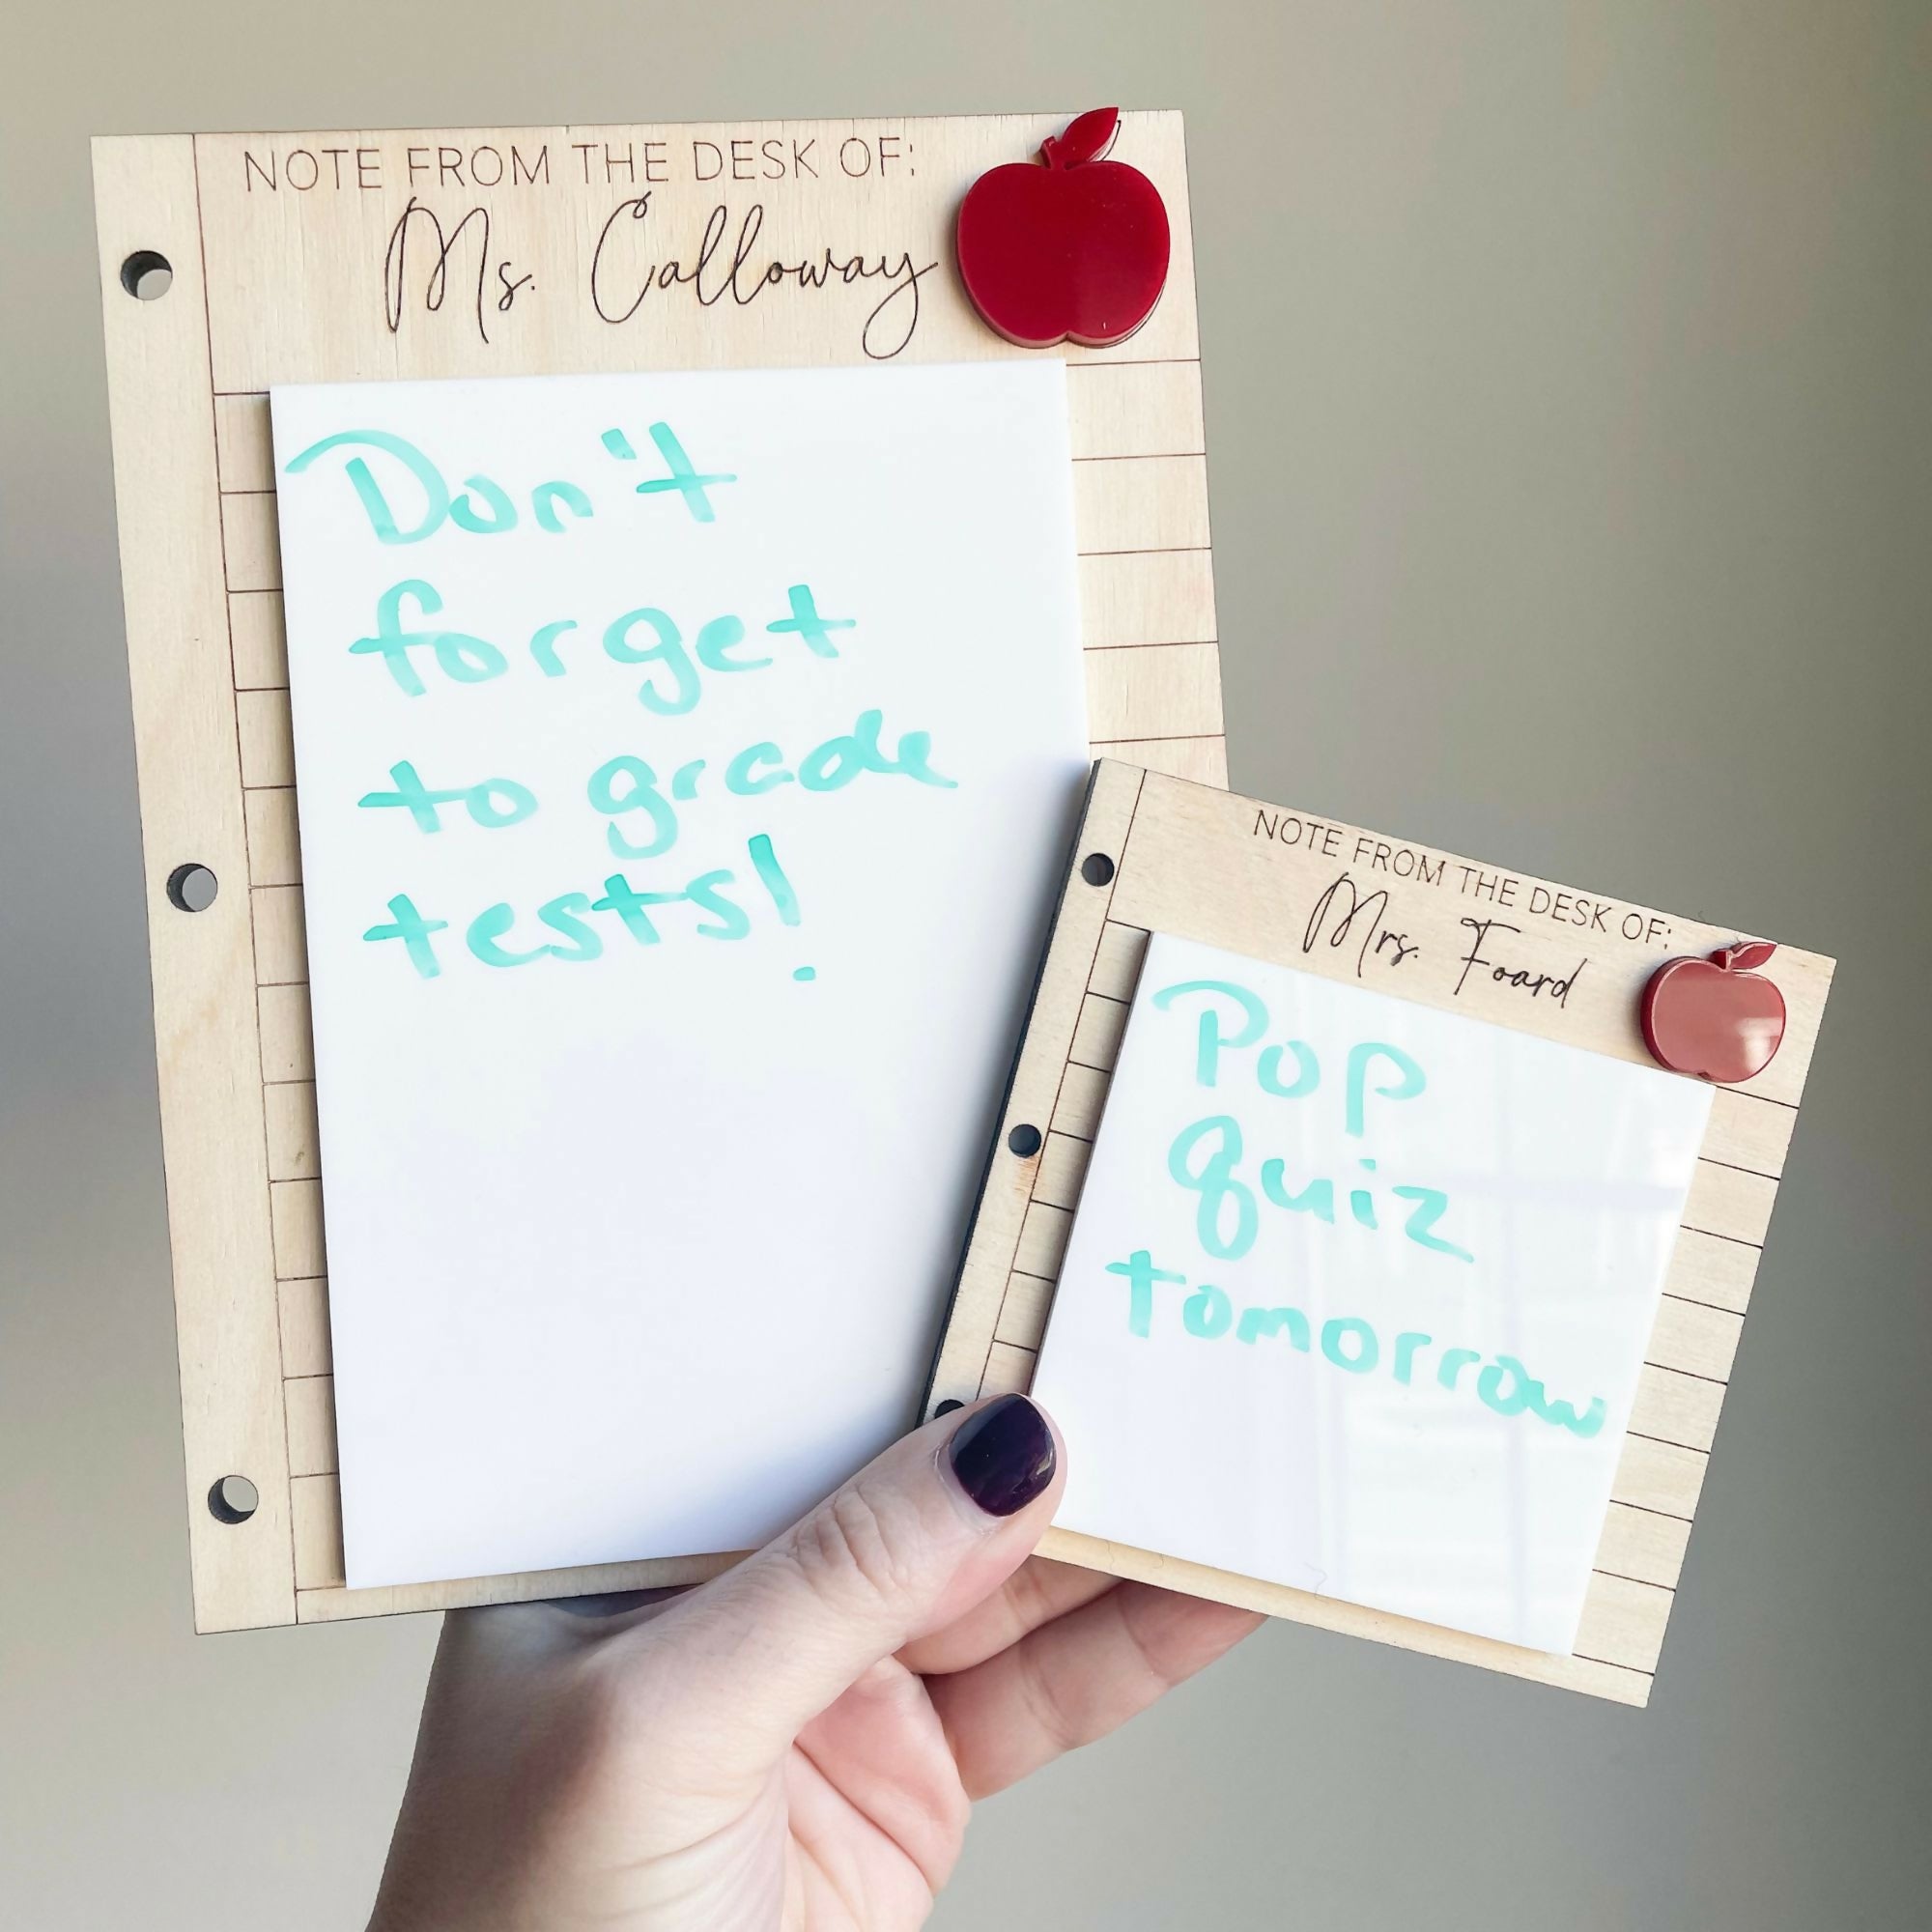 NOTE FROM THE DESK OF:
Ms. Calloway
Don't
forget
to grade
tests!
NOTE FROM THE DESK OF:
Mrs. Foard
Pop
quiz
tomorrow